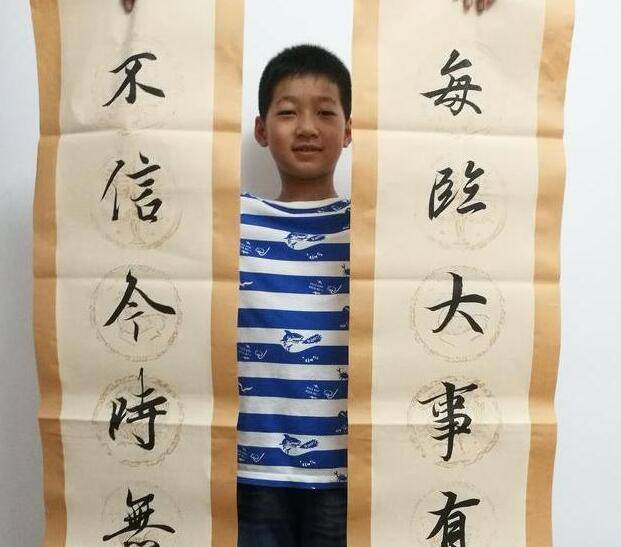 每臨大事有
不信今時無